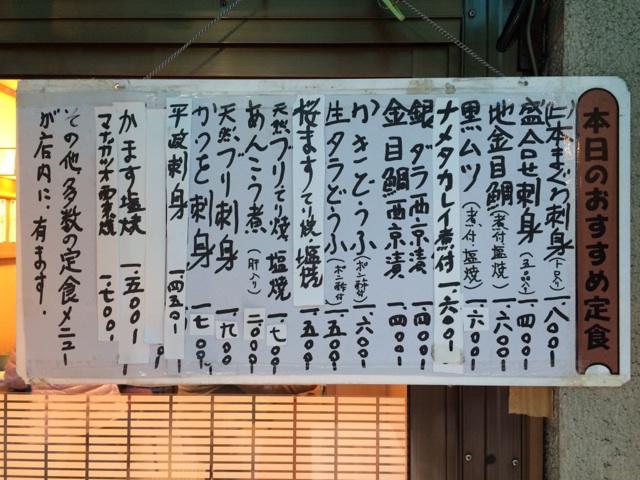 本日のおすすめ定食
本まぐろ刺身(下足入り) 一、八〇〇円
盛合せ刺身(五品入り) 一、四〇〇
地金目鯛(煮付 塩焼) 一、六〇〇
黒ムツ(煮付 塩焼) 一、六〇〇
ナメタカレイ煮付 一、六〇〇
銀ダラ西京漬 一、四〇〇
金目鯛西京漬 一、四〇〇
かきどうふ 一、六〇〇
生タラどうふ 一、五〇〇
桜ますてり焼 塩焼 一、五〇〇
天然ブリてり焼 塩焼 一、七〇〇
あんこう煮(肝入り) 二、〇〇〇
天然ブリ刺身 一、九〇〇
かつを刺身 一、七〇〇
平政刺身 一、四五〇
かます塩焼 一、五〇〇
マナガツオ西京焼 一、七〇〇
その他多数の定食メニュー
が店内に、有ります.